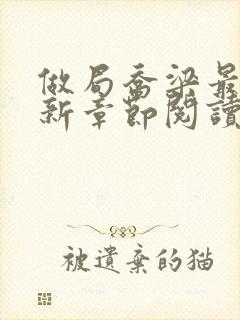 做局喬梁最
新章節閱讀
被遺棄的猫